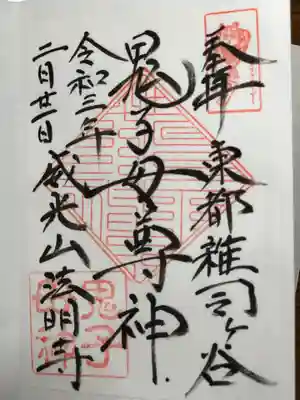 奉拝 東都雑司ヶ谷
鬼子母尊神
令和三年
二月廿一日 威光山法明寺